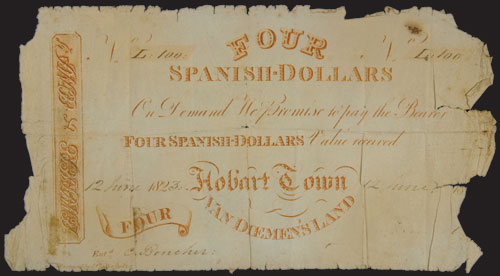 FOUR
Nº L.100. Nº L.100
SPANISH-DOLLARS
On Demand We Promise to pay the Bearer
FOUR SPANISH-DOLLARS Value received
12 June 1823 Hobart Town 12 June
VAN DIEMEN'S LAND
FOUR
Ent.